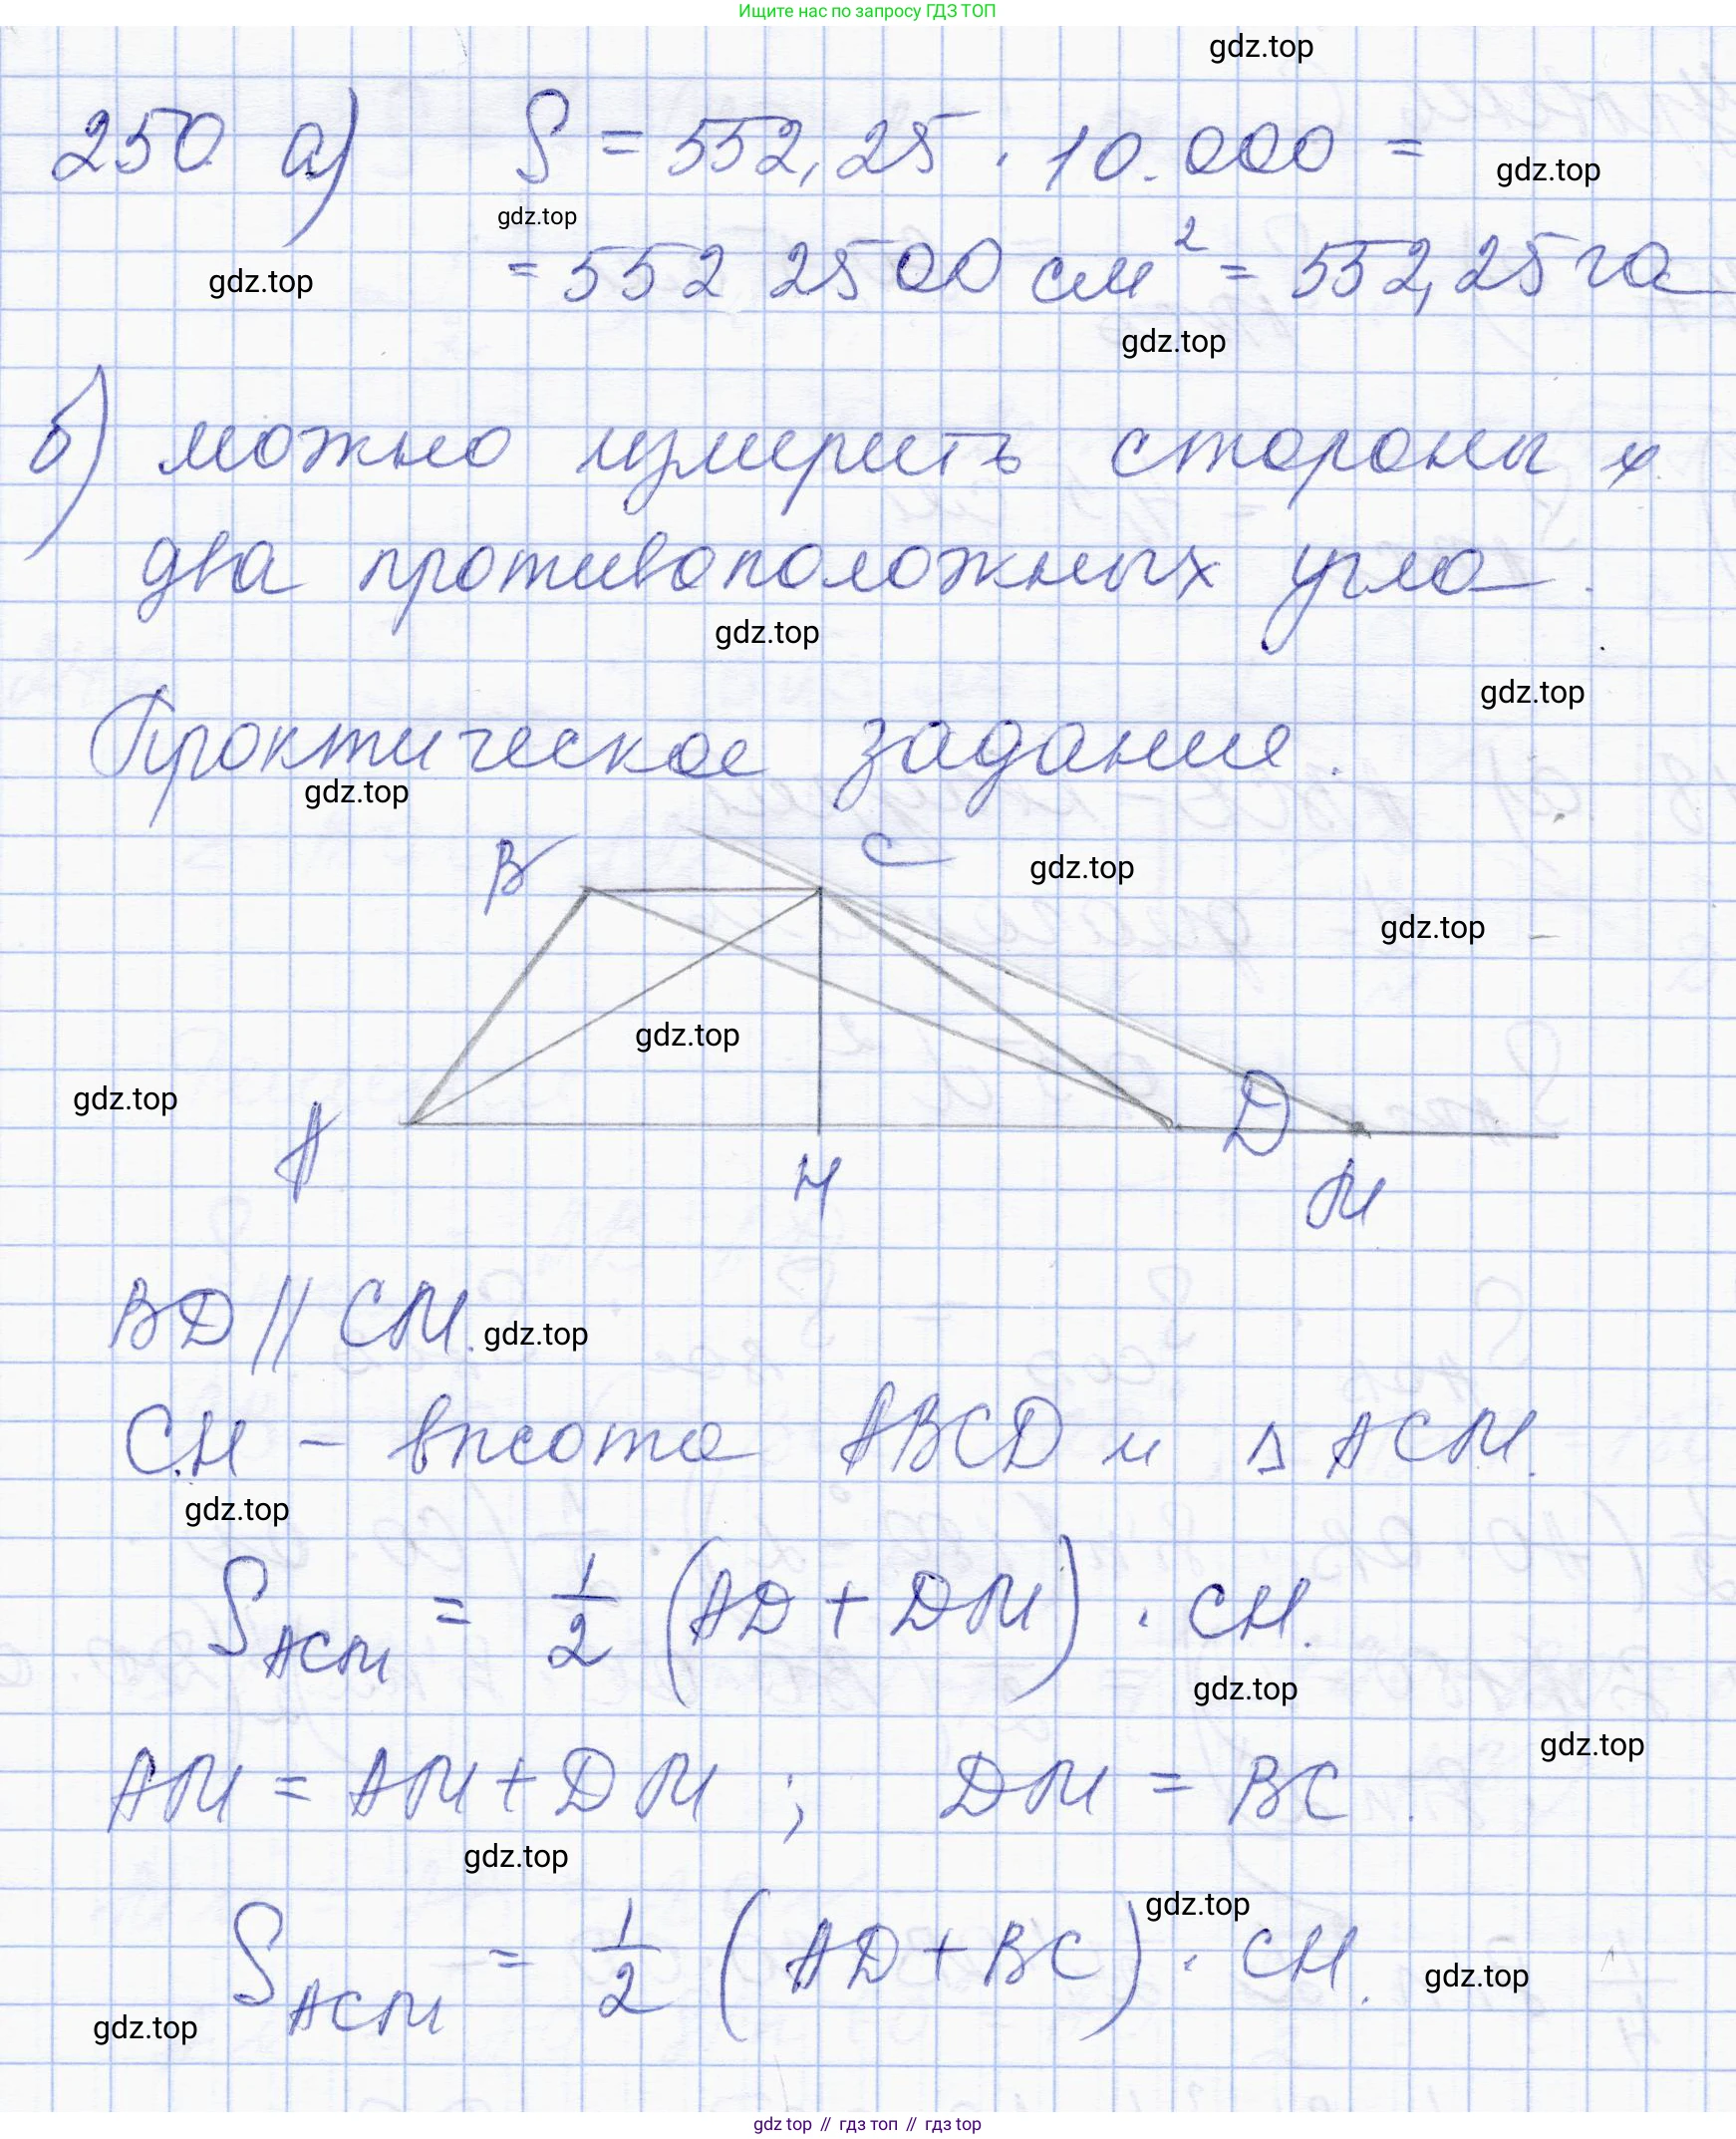 Ищите нас по запросу ГДЗ ТОП
gdz.top
250 а) S = 552,25 · 10.000 =
gdz.top
gdz.top
= 552 2500 см² = 552,25 га
gdz.top
gdz.top
б) можно измерить стороны и
два противоположных угла.
gdz.top
gdz.top
Практическое задание.
gdz.top
B C
gdz.top
gdz.top
gdz.top
gdz.top
A H D M
BD || CM.
gdz.top
CH – высота ABCD и Δ ACM.
gdz.top
S ACM = 1/2 (AD + DM) · CH.
gdz.top
gdz.top
AM = AM + DM ; DM = BC.
gdz.top
gdz.top
S ACM = 1/2 (AD + BC) · CH.
gdz.top
gdz.top
gdz top // гдз топ // gdz top